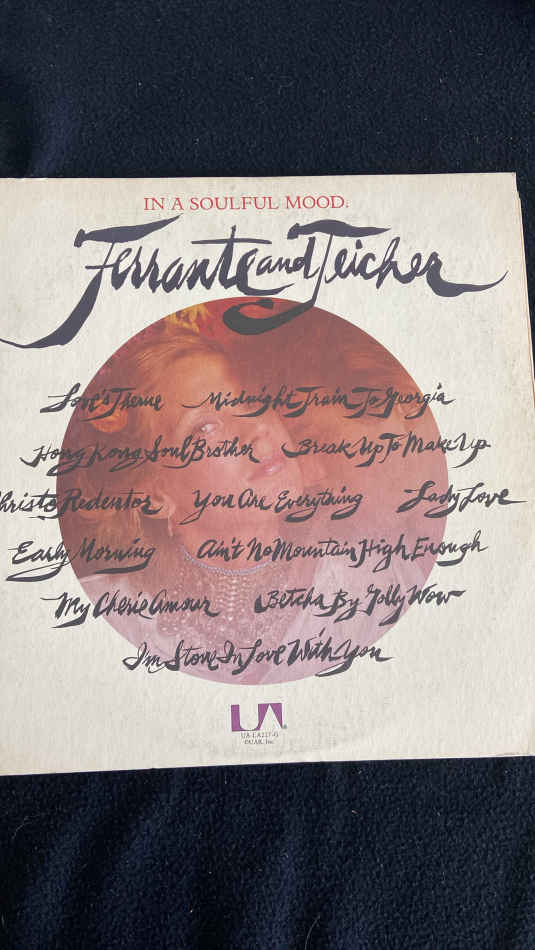 IN A SOULFUL MOOD.
Ferrante and Teicher
Love's Theme Midnight Train To Georgia
Hong Kong Soul Brother Break Up To Make Up
Christo Redentor You Are Everything Lady Love
Early Morning Ain't No Mountain High Enough
My Cherie Amour Betcha By Golly Wow
I'm Stone In Love With You
UA
UA-LA227-G
©UAR, Inc.